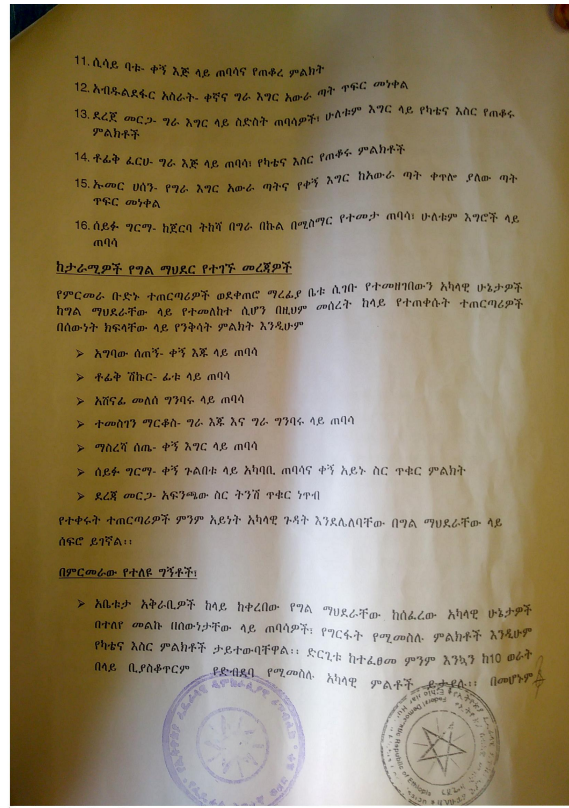 11. ሲሳይ ባቱ- ቀኝ እጅ ላይ ጠባሳና የጠቆረ ምልክት
12. አብዱልደፋር አስራት- ቀኛና ግራ እግር አውራ ጣት ጥፍር መነቀል
13. ደረጀ መርጋ- ግራ እግር ላይ ስድስት ጠባሳዎች፣ ሁለቱም እግር ላይ የካቴና እስር የጠቆሩ
ምልክቶች
14. ቶፊቅ ፈርሁ- ግራ እጅ ላይ ጠባሳ፣ የካቴና እስር የጠቆሩ ምልክቶች
15. ኡመር ሀሰን- የግራ እግር አውራ ጣትና የቀኝ እግር ከአውራ ጣት ቀጥሎ ያለው ጣት
ጥፍር መነቀል
16. ሰይፉ ግርማ- ከጀርባ ትከሻ በግራ በኩል በሚስማር የተመታ ጠባሳ፣ ሁለቱም እግሮች ላይ
ጠባሳ
ከታራሚዎች የግል ማህደር የተገኙ መረጃዎች
የምርመራ ቡድኑ ተጠርጣሪዎች ወደቀጠሮ ማረፊያ ቤቱ ሲገቡ የተመዘገበውን አካላዊ ሁኔታዎች
ከግል ማህደራቸው ላይ የተመለከተ ሲሆን በዚህም መሰረት ከላይ የተጠቀሱት ተጠርጣሪዎች
በሰውነት ክፍላቸው ላይ የንቅሳት ምልክት እንዲሁም
➢ አግባው ሰጠኝ- ቀኝ እጁ ላይ ጠባሳ
➢ ቶፊቅ ሽኩር- ፊቱ ላይ ጠባሳ
➢ አሸናፊ መለሰ ግንባሩ ላይ ጠባሳ
➢ ተመስገን ማርቆስ- ግራ እጁ እና ግራ ግንባሩ ላይ ጠባሳ
➢ ማስረሻ ሰጤ- ቀኝ እግር ላይ ጠባሳ
➢ ሰይፉ ግርማ- ቀኝ ጉልበቱ ላይ አካባቢ ጠባሳና ቀኝ አይኑ ስር ጥቁር ምልክት
➢ ደረጃ መርጋ- አፍንጫው ስር ትንሽ ጥቁር ነጥብ
የተቀሩት ተጠርጣሪዎች ምንም አይነት አካላዊ ጉዳት እንደሌለባቸው በግል ማህደራቸው ላይ
ሰፍሮ ይገኛል፡፡
በምርመራው የተለዩ ግኝቶች፣
➢ አቤቱታ አቅራቢዎች ከላይ ከቀረበው የግል ማህደራቸው ከሰፈረው አካላዊ ሁኔታዎች
በተለየ መልኩ በሰውነታቸው ላይ ጠባሳዎች፣ የግርፋት የሚመስሉ ምልክቶች እንዲሁም
የካቴና እስር ምልክቶች ታይተውባቸዋል፡፡ ድርጊቱ ከተፈፀመ ምንም እንኳን ከ10 ወራት
በላይ ቢያስቆጥርም የድብደባ የሚመስሉ አካላዊ ምልቶች ይታያሉ፡፡ በመሆኑም
Federal Democratic Republic of Ethiopia